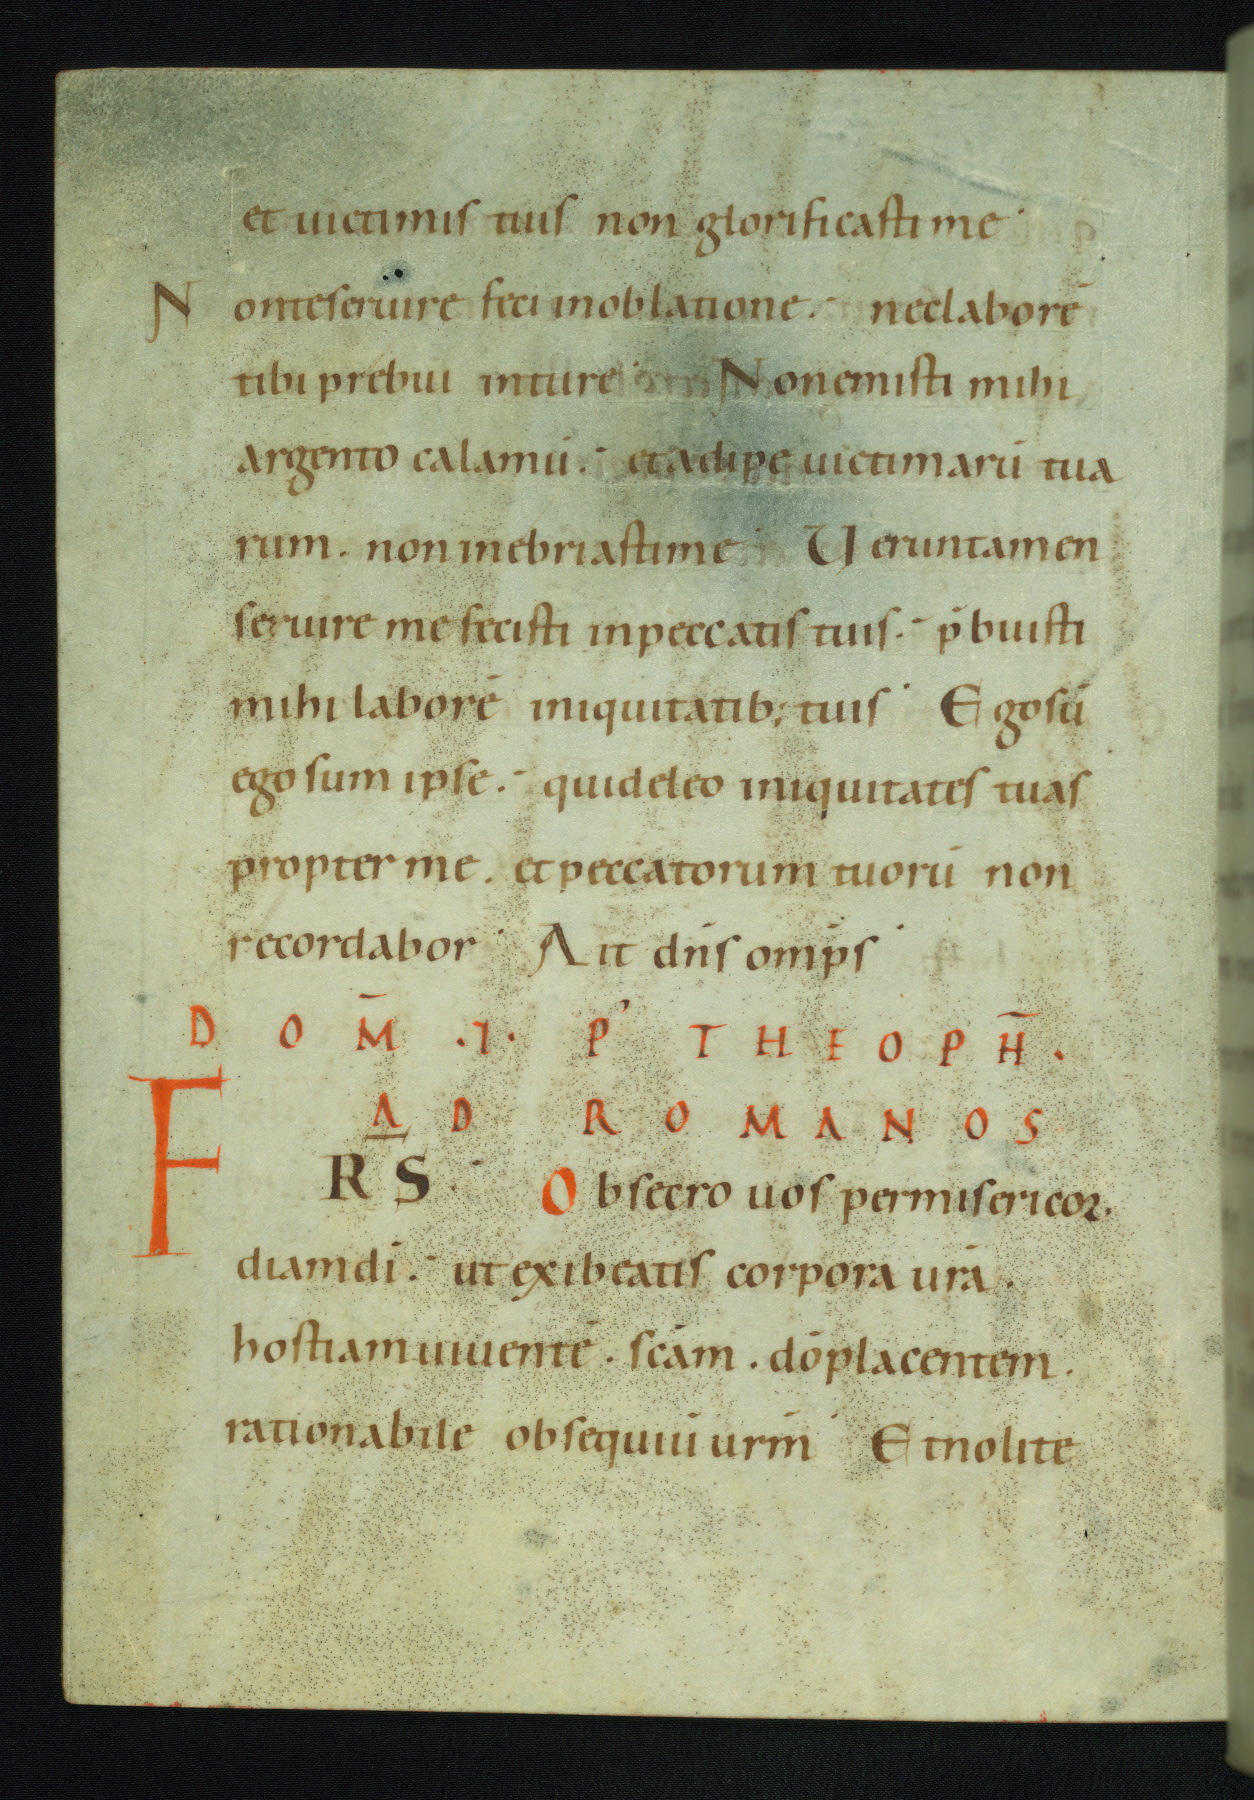 et uictimis tuis non glorificasti me
N onteseruire feci inoblatione. neclaborē
tibi prebui inture N onemisti mihi
argento calamū. et adipe uictimarū tua
rum. non inebriastime U eruntamen
seruire me fecisti inpeccatis tuis. p̄buisti
mihi laborē iniquitatib; tuis E gosū
ego sum ipse. quideleo iniquitates tuas
propter me. et peccatorum tuorū non
recordabor A it dn̄s omp̄s
D O M̄ .I. P' T H E O P H̄ .
A D R O M A N O S
F R S O bsecro uos permisericor.
diamdī. ut exibeatis corpora urā.
hostiamuiuentē. scām. dōplacentem.
rationabile obsequiū urm̄ E tnolite